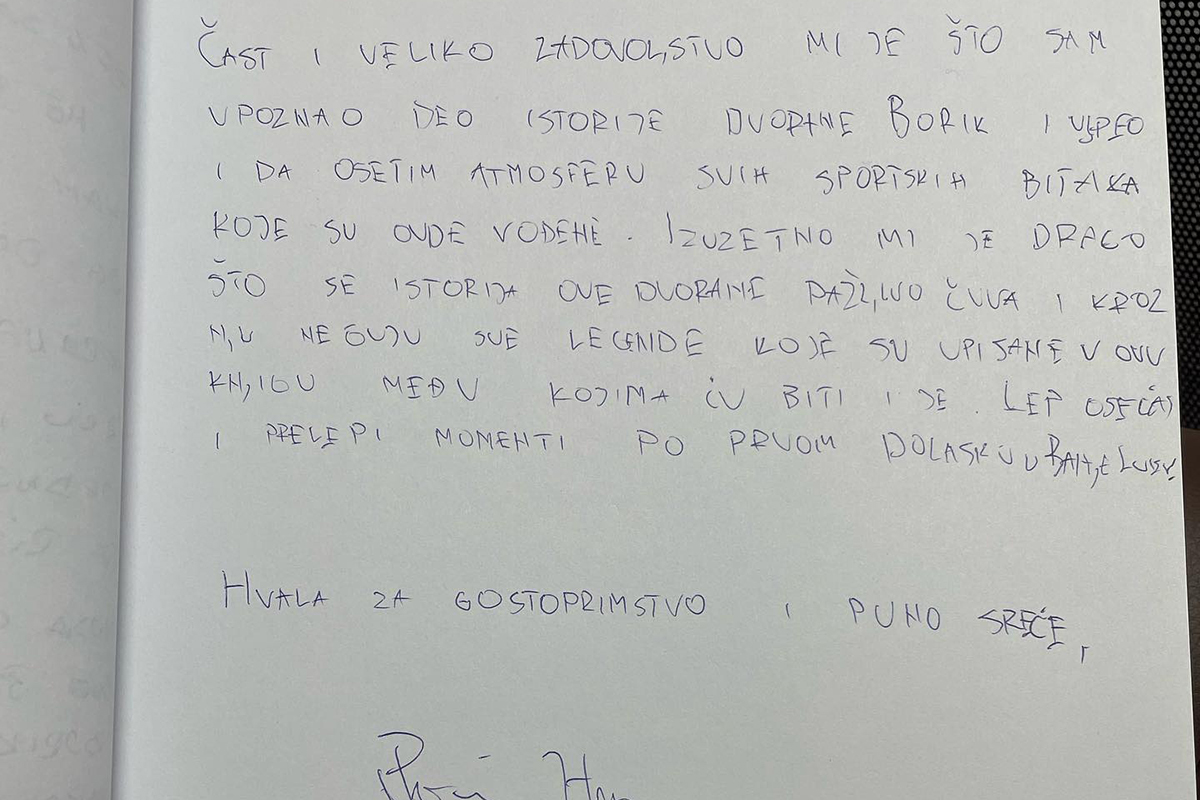 ČAST I VELIKO ZADOVOLJSTVO MI JE ŠTO SAM
UPOZNAO DEO ISTORIJE DVORANE BORIK I USPEO
I DA OSETIM ATMOSFERU SVIH SPORTSKIH BITAKA
KOJE SU OVDE VOĐENE. IZUZETNO MI JE DRAGO
ŠTO SE ISTORIJA OVE DVORANE PAŽLJIVO ČUVA I KROZ
NJU NEGUJU SVE LEGENDE KOJE SU UPISANE U OVU
KNJIGU MEĐU KOJIMA ĆU BITI I JA. LEP OSEĆAJ
I PRELEPI MOMENTI PO PRVOM DOLASKU U BANJA LUKU.
HVALA ZA GOSTOPRIMSTVO I PUNO SREĆE,